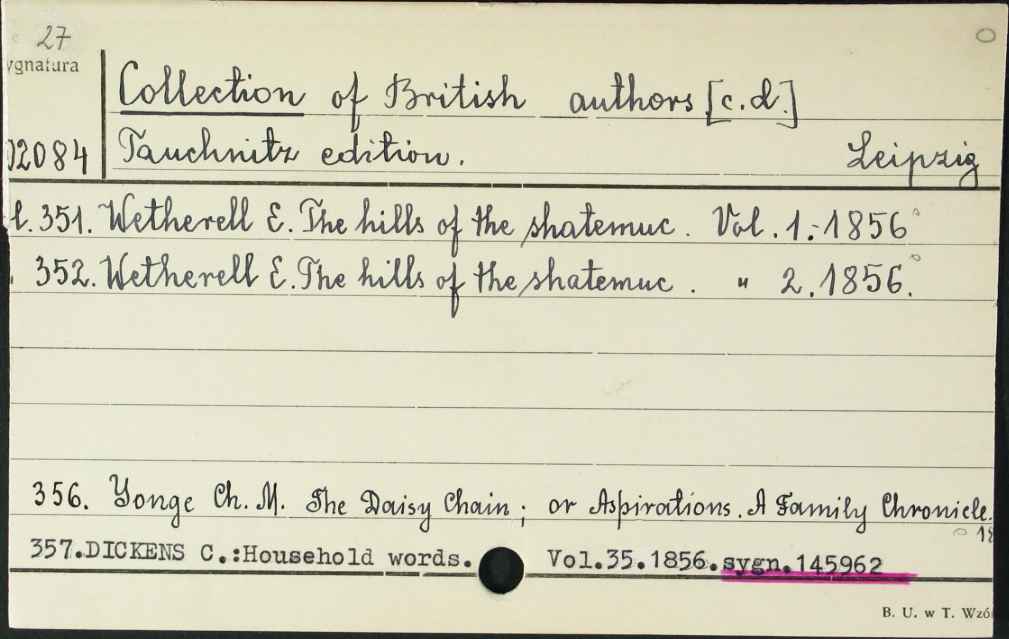 27
ygnatura
Collection of British authors [c.d.]
02084 Tauchnitz edition. Leipzig
l. 351. Wetherell E. The hills of the shatemuc. Vol. 1.-1856
352. Wetherell E. The hills of the shatemuc. " 2. 1856.
356. Yonge Ch. M. The Daisy Chain; or Aspirations. A Family Chronicle.
18
357.DICKENS C.:Household words. Vol.35.1856.sygn.145962
B. U. w T. Wzó